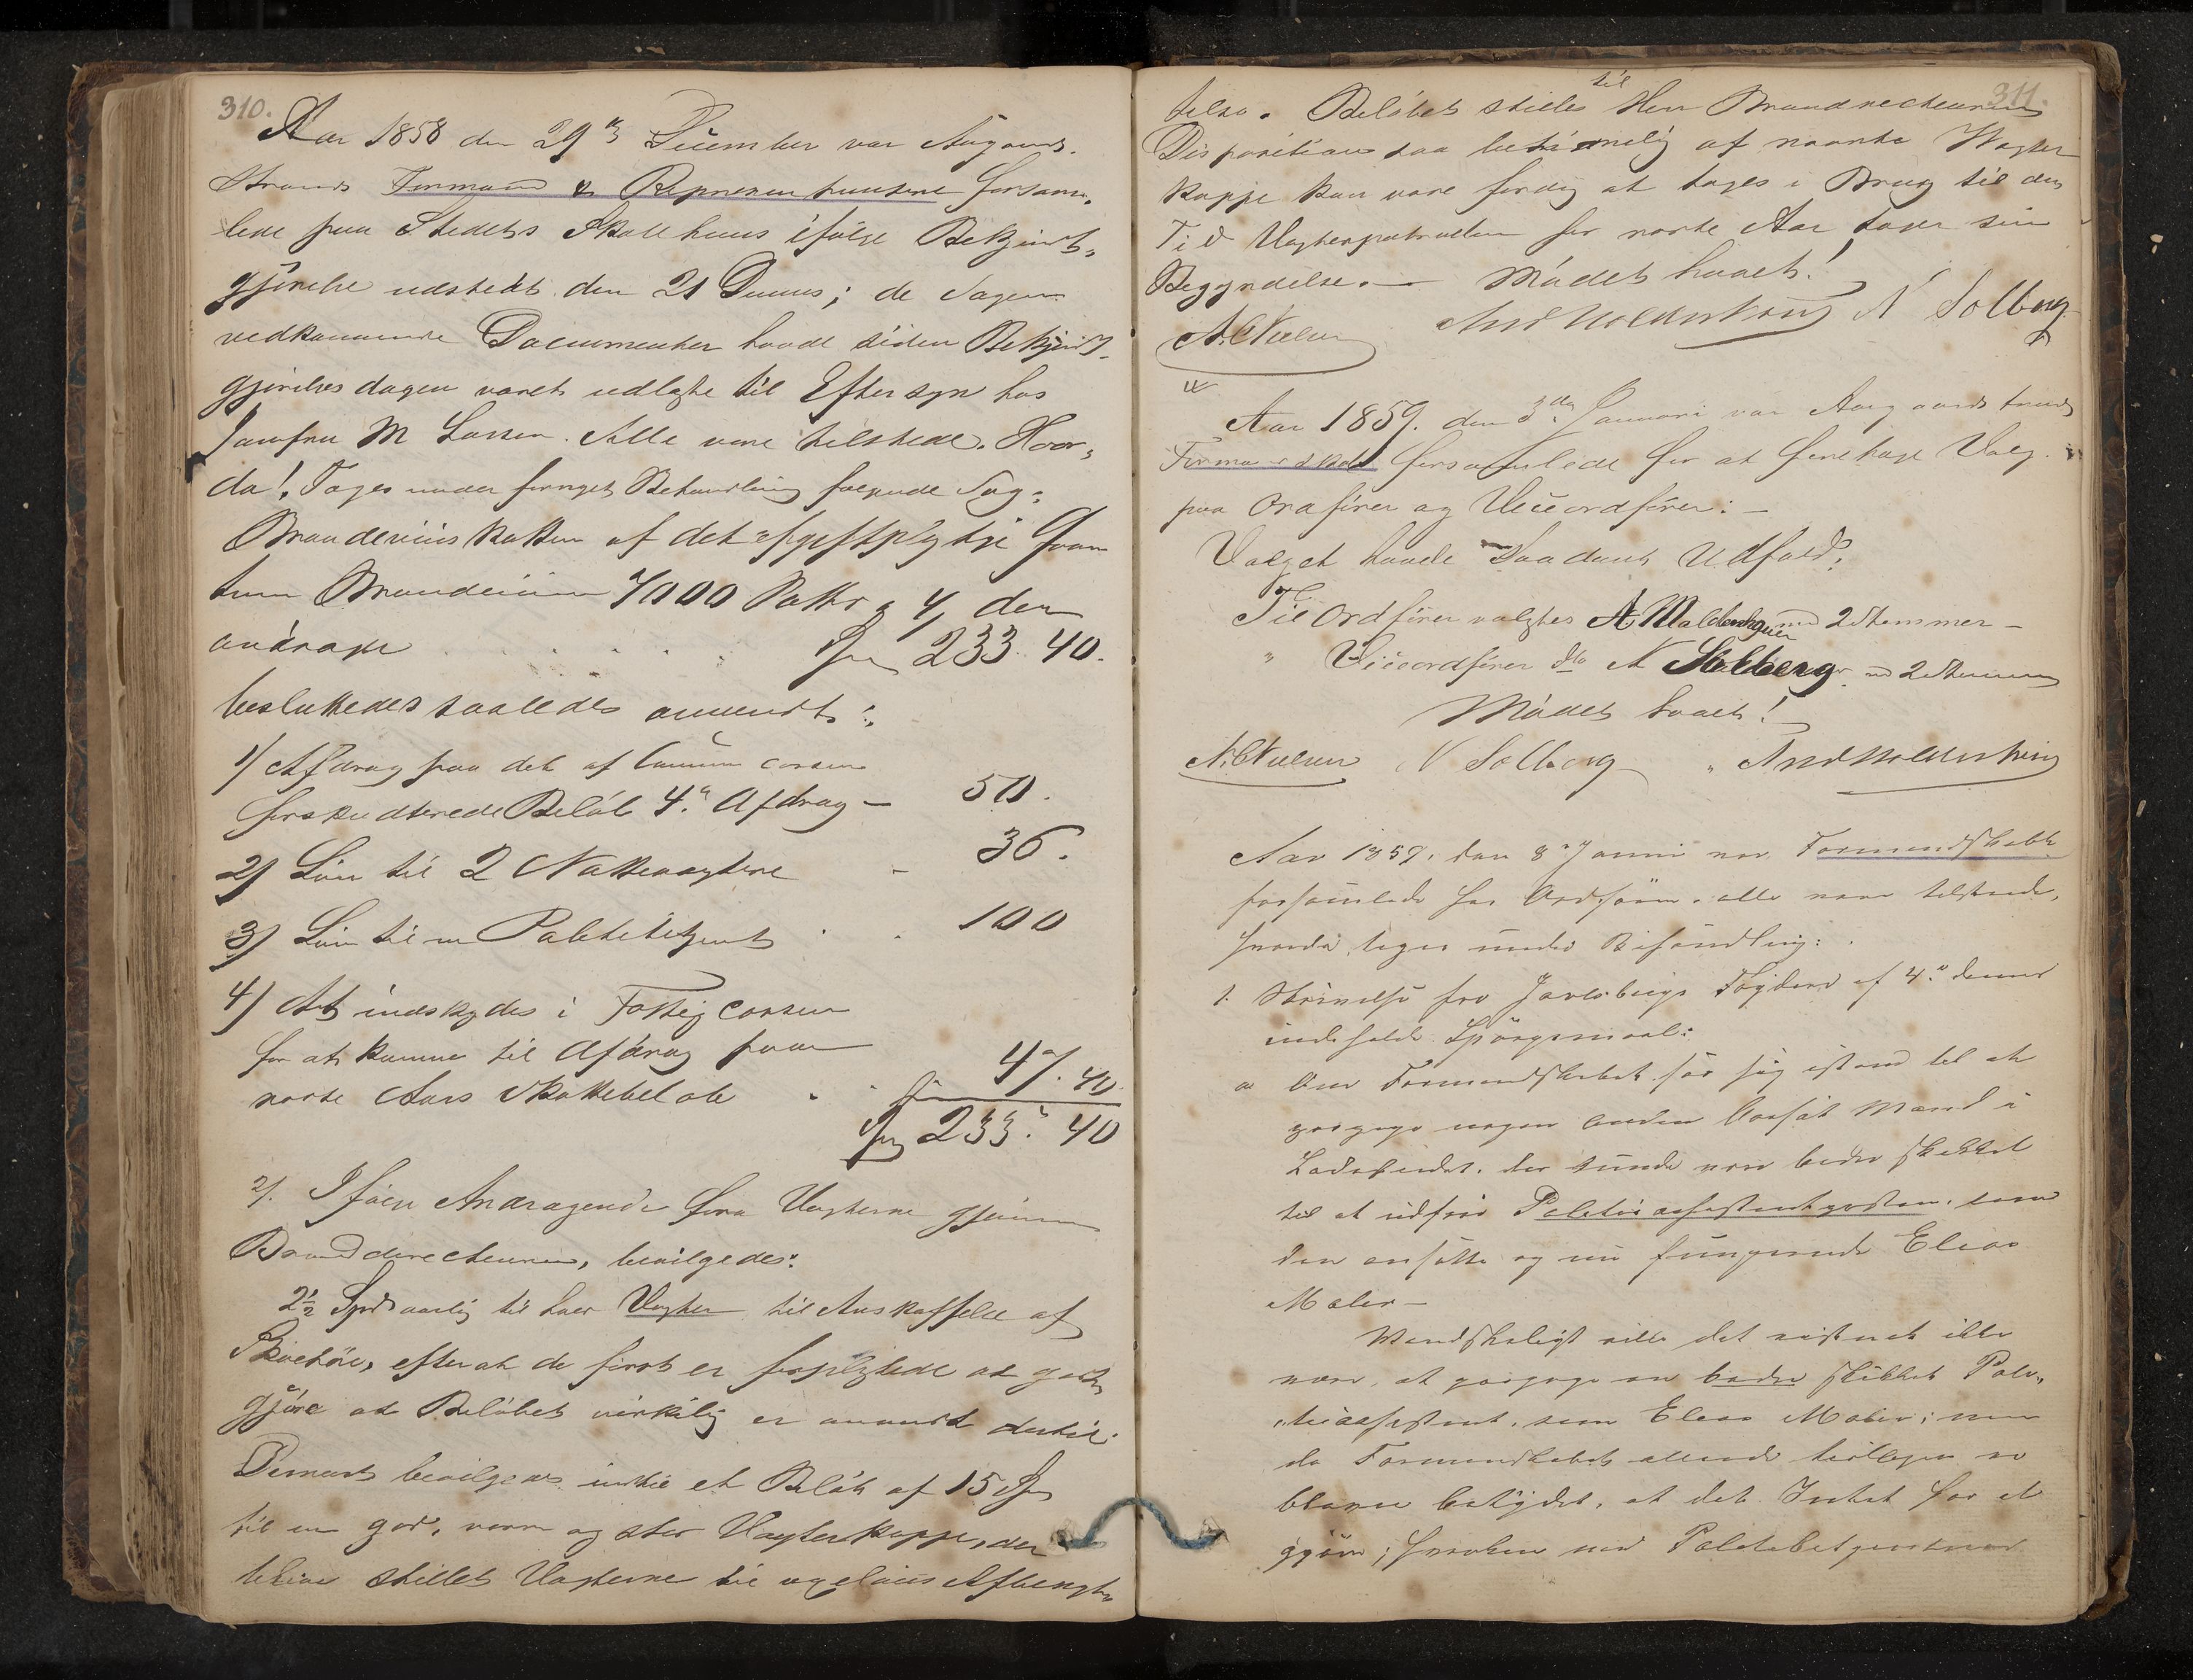 310.
Aar 1858 den 29de December var Aasgaard-
strands Formænd & Repræsentantere forsam-
lede paa Stedets Skolehuus ifølge Bekjendt-
gjörelse udstedt den 21 Dennes; de Sagen
vedkommende Documenter havde siden Bekjendt-
gjörelsesdagen været udlagte til Eftersyn hos
Jomfru M Larsen. Alle vare tilstede. Hvor-
da! Toges under fornyet Behandling følgende Sag:
Brændeviinsskatten af det afgiftspligtige Qvan
tum Brændeviin 7000 Potter a 4 der
andrager . . . . . Spd 233. 40.
besluttedes saaledes anvendt:
1) Afdrag paa det af Communecassen
forskudterede Beløb 4de Afdrag – 50.
2) Løn til 2 Nattevægtere – 36.
3) Løn til en Politibetjent . . 100
4) At indskydes i Fattigcassen
for at komme til Afdrag paa
næste Aars Skattebeløb . . 47. 40.
Spd 233. 40
2). Ifølge Andragende fra Vægterne gjennem
Branddirecteuren, bevilgedes:
2½ Spd aarlig til hver Vægter til Anskaffelse af
Skoetøi, efterat de først er forpligtede at godt-
gjøre at Beløbet virkelig er anvendt dertil.
Dernæst bevilgedes indtil et Beløb af 15 Spd
til en god, varm og stor Vægterkappe, der
bliver stillet Vægterne til vexelviis Afbenyt-
311.
telse. Beløbet stilles til Herr Branddirecteurens
Disposition saa betimelig at nævnte Vægter
kappe kan være færdig at tages i Brug til den
Tid Vægterpatrollen for næste Aar tager sin
Begyndelse. — Mødet hævet!
A. Nielsen And Holdenkoug N Solberg
Aar 1859. den 3die Januari var Aasgaardstrands
Formandskab forsamlede for at foretage Valg
paa Ordfører og Viceordfører: –
Valget havde saadant Udfald:
Til Ordfører valgtes A 2 Stemmer –
" Viceordfører dto N Solberg med 2 Stemmer
Mødet hævet!
A. Nielsen N Solberg " And Holdenkoug
Aar 1859. den 8de Januari var Formandskabet
forsamlede hos Ordføreren, alle vare tilstede,
hvorda toges under Behandling:
1. Skrivelse fra Jarlsbergs Fogderi af 4de dennes
indeholdt Spørgsmaal:
a Om Formandskabet saa sig istand til at
paapege nogen anden bosat Mand i
Ladestedet, der kunde være bedre skikket
til at udføre Politieassistentposten, som
den ansatte og nu fungerende Elias
Maler –
Vanskeligt ville det vistnok ikke
være, at paapege en bedre skikket Poli-
tieassistent, som Elias Maler; men
da Formandskabet allerede tidligere er
bleven betydet, at det Intet har at
gjøre, hverken med Politibetjentens